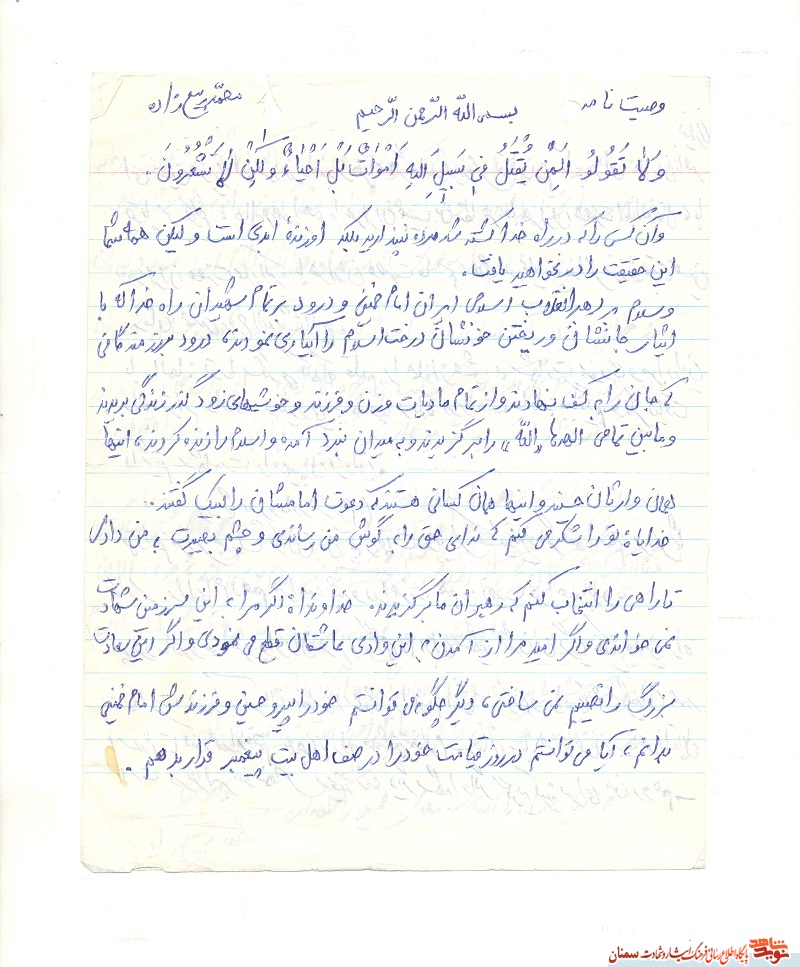 وصیت نامه
محمد ربیع زاده
بسم الله الرحمن الرحیم
وَلا تَقُولُو اَلِمَنْ یُقْتَلُ فِی سَبیلِ اللهِ اَمْواتٌ بَلْ اَحْیاءٌ وَلکِنْ لا تَشْعُرُونَ.
و آن کسی را که در راه خدا کشته شد مرده نپندارید بلکه او زندهٔ ابدی است و لیکن همه شما
این حقیقت را در نخواهید یافت.
و سلام بر رهبر انقلاب اسلامی ایران امام خمینی و درود بر تمام شهیدان راه خدا که با
ایثار جانشان و ریختن خونشان درخت اسلام را آبیاری نمودند، درود بر رزمندگانی
که جان را به کف نهادند و از تمام مادیات و زن و فرزند و خوشیهای زود گذر زندگی بریدند
و مابین تمامی الهه‌ها «الله» را برگزیدند و به میدان نبرد آمده و اسلام را زنده کردند، اینها
همان وارثان حسیند و اینها همان کسانی هستند که دعوت امامشان را لبیک گفتند.
خدایا، تو را شکر می کنم که ندای حق را به گوش من رساندی و چشم بصیرت به من دادی
تا راهی را انتخاب کنم که رهبران ما برگزیدند. خداوندا، اگر مرا به این سرزمین شهادت
نمی خواندی و اگر امید مرا از آمدن به این وادی عاشقان قطع می نمودی و اگر این سعادت
بزرگ را نصیبم نمی ساختی، دیگر چگونه می توانستم خود را پیرو حسین و فرزندش امام خمینی
بدانم، آیا می توانستم در روز قیامت خود را در صف اهل بیت پیغمبر قرار بدهم.
نوید شاهد
پایگاه اطلاع رسانی فرهنگ ایثار و شهادت سمنان